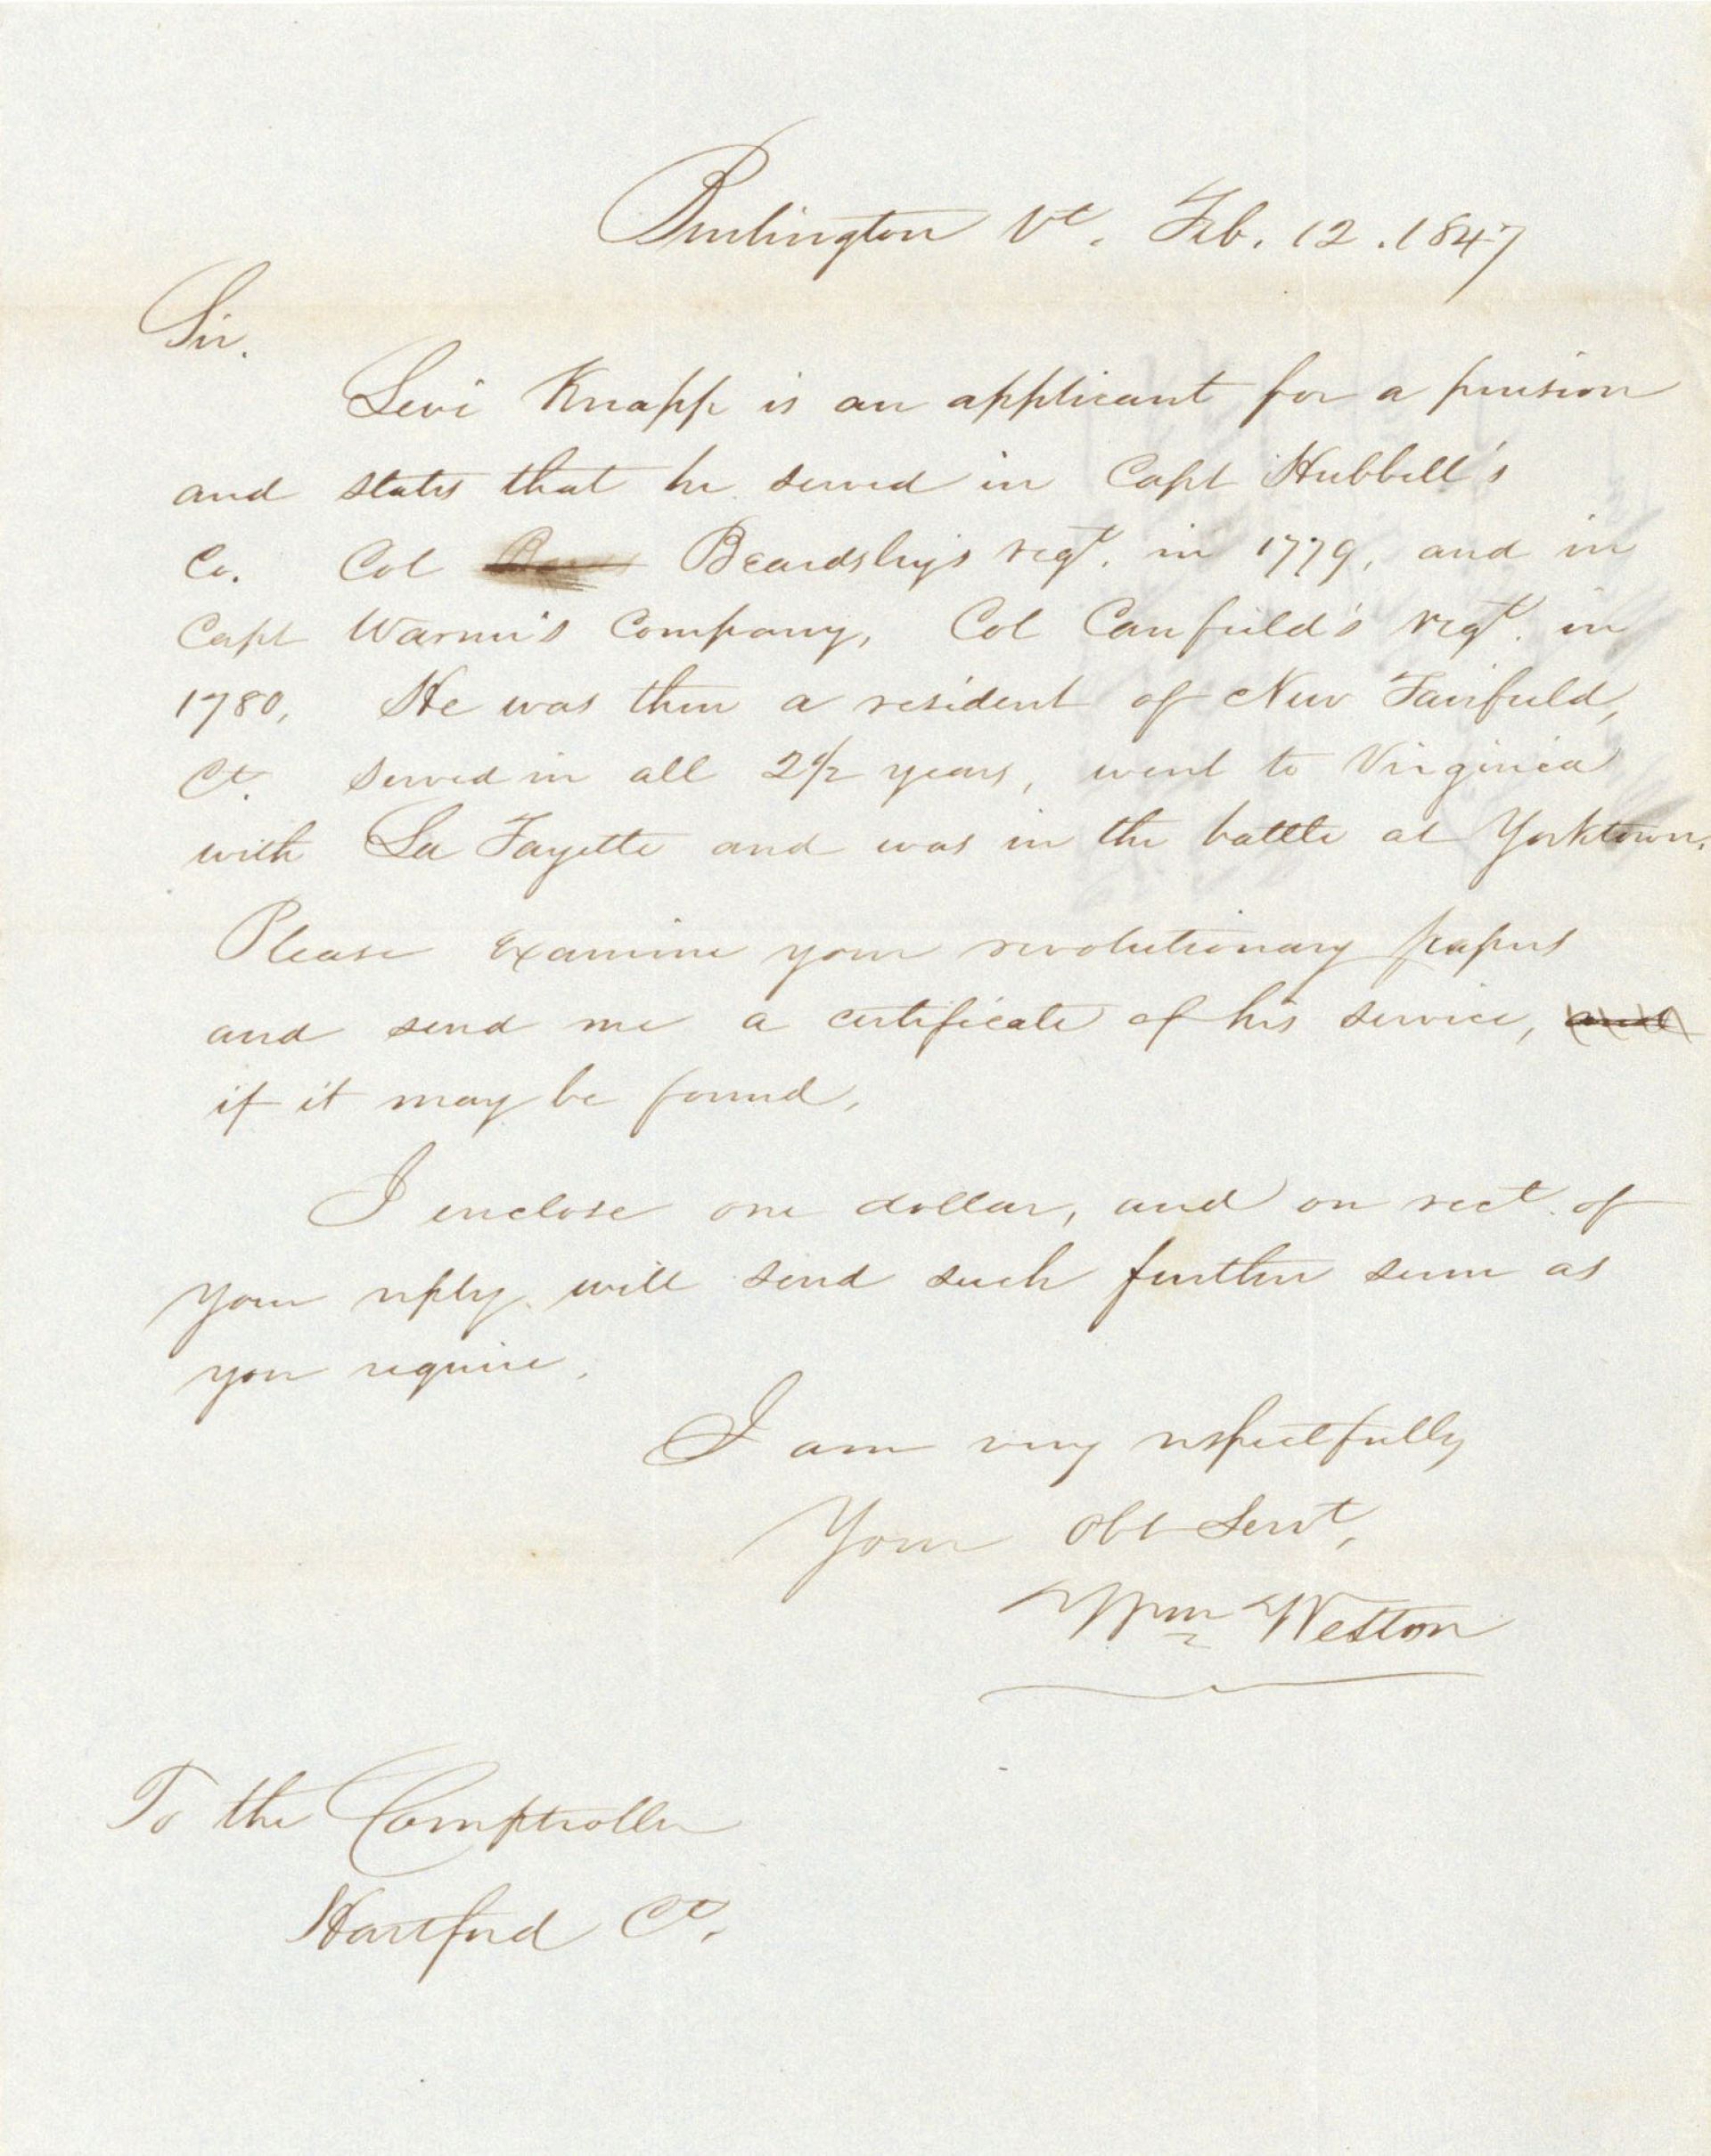 Burlington Vt. Feb. 12. 1847
Sir.
Levi Knapp is an applicant for a pension
and states that he served in Capt Hubbell's
Co. Col Beardsley's regt. in 1779, and in
Capt Warner's Company, Col Canfield's regt. in
1780, He was then a resident of New Fairfield,
Ct. served in all 2 1/2 years, went to Virginia
with La Fayette and was in the battle at Yorktown.
Please examine your revolutionary papers
and send me a certificate of his service, and
if it may be found,
I enclose one dollar, and on rect. of
your reply will send such further sum as
you require.
I am very respectfully
Your Obt Servt,
Wm Weston
To the Comptroller
Hartford Ct.